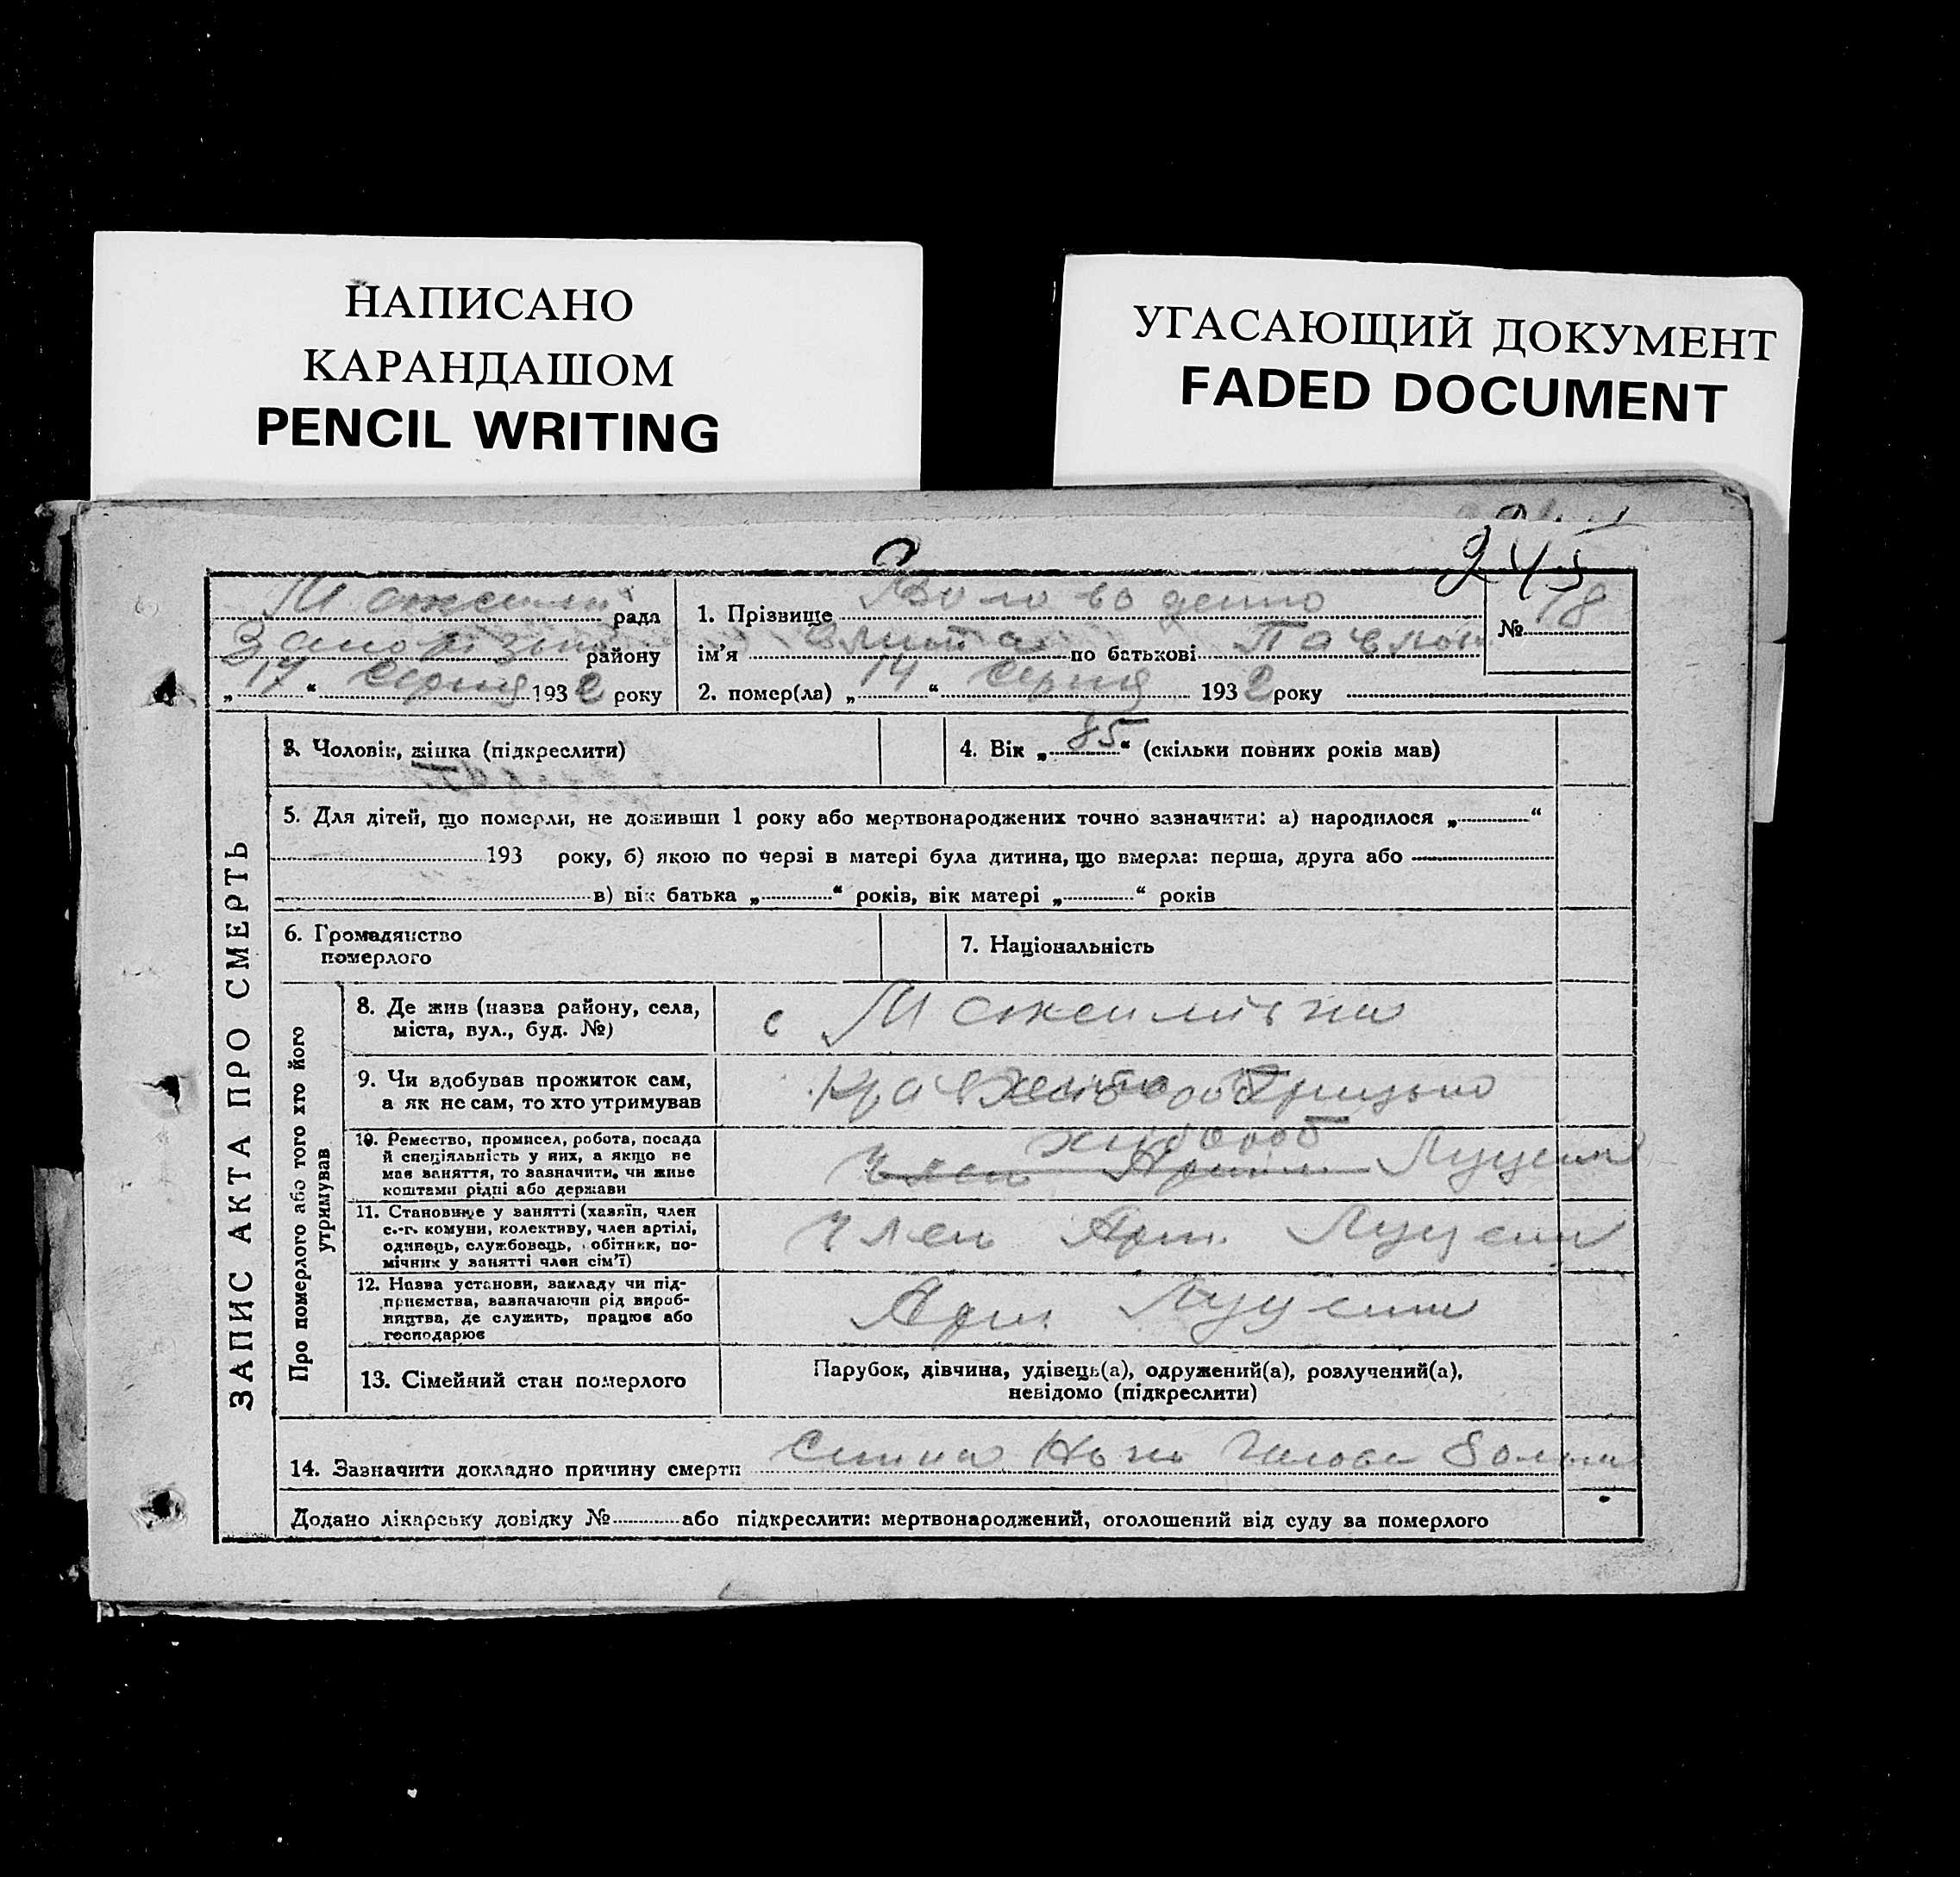 НАПИСАНО
КАРАНДАШОМ
PENCIL WRITING
УГАСАЮЩИЙ ДОКУМЕНТ
FADED DOCUMENT
245
рада
району
„17“ Серпня 1932 року
1. Прізвище
ім’я по батькові
2. помер(ла) „14“ Серпня 1932 року
№ 78
ЗАПИС АКТА ПРО СМЕРТЬ
3. Чоловік, жінка (підкреслити)
4. Вік „85“ (скільки повних років мав)
5. Для дітей, що померли, не доживши 1 року або мертвонароджених точно зазначити: а) народилося „ “
193 року, б) якою по черзі в матері була дитина, що вмерла: перша, друга або
в) вік батька „ “ років, вік матері „ “ років
6. Громадянство
померлого
7. Національність
Про померлого або того хто його
утримував
8. Де жив (назва району, села,
міста, вул., буд. №)
с
9. Чи здобував прожиток сам,
а як не сам, то хто утримував
Грицько
10. Ремество, промисел, робота, посада
й спеціяльність у них, а якщо не
мав заняття, то зазначити, чи живе
коштами рідні або держави
хлібороб
11. Становище у занятті (хазяїн, член
с.-г. комуни, колективу, член артілі,
одинець, службовець, обітник, по-
мічник у занятті член сім’ї)
Член Арт.
12. Назва установи, закладу чи під-
приємства, зазначаючи рід вироб-
ництва, де служить, працює або
господарює
Арт.
13. Сімейний стан померлого
Парубок, дівчина, удівець(а), одружений(а), розлучений(а),
невідомо (підкреслити)
14. Зазначити докладно причину смерти
Додано лікарську довідку № або підкреслити: мертвонароджений, оголошений від суду за померлого